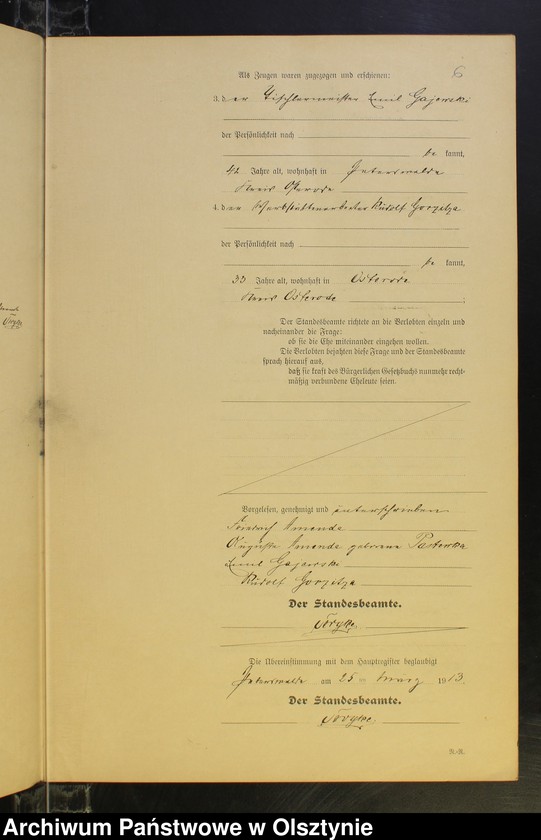 6
Als Zeugen waren zugezogen und erschienen:
3. der Tischlermeister Emil Gajewski
der Persönlichkeit nach
be kannt,
42 Jahre alt, wohnhaft in Peterswalde
Kreis Osterode
4. der Werkstättenarbeiter Rudolf Gorzelza
der Persönlichkeit nach
be kannt,
33 Jahre alt, wohnhaft in Osterode
Kreis Osterode ;
Der Standesbeamte richtete an die Verlobten einzeln und
nacheinander die Frage:
ob sie die Ehe miteinander eingehen wollen.
Die Verlobten bejahten diese Frage und der Standesbeamte
sprach hierauf aus,
daß sie kraft des Bürgerlichen Gesetzbuchs nunmehr recht-
mäßig verbundene Eheleute seien.
Vorgelesen, genehmigt und unterschrieben
Auguste geborene
Emil Gajewski
Rudolf Gorzelza
Der Standesbeamte.
Die Übereinstimmung mit dem Hauptregister beglaubigt
Peterswalde am 25 ten März 1913.
Der Standesbeamte.
Archiwum Państwowe w Olsztynie